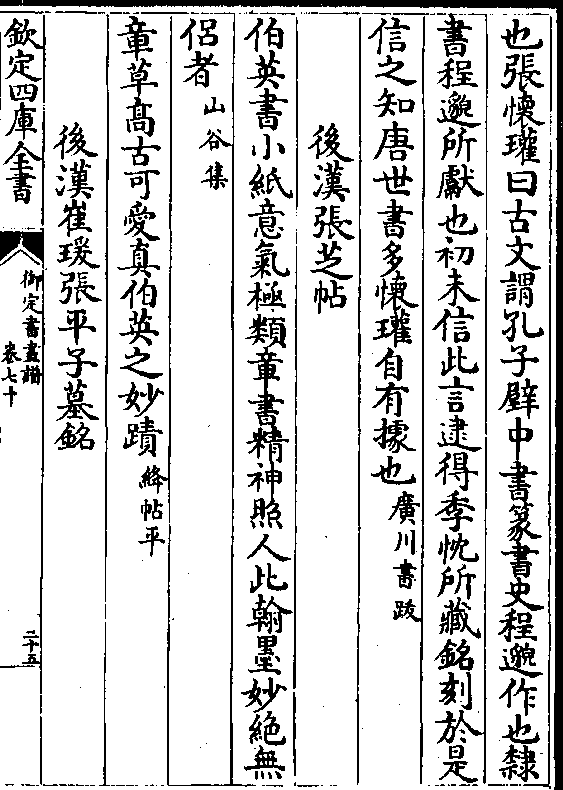 也張懷瓘曰古文謂孔子壁中書篆書史程邈作也隸
書程邈所獻也初未信此言逮得季忱所藏銘刻於是
信之知唐世書多懷瓘自有據也廣川書跋
後漢張芝帖
伯英書小紙意氣極類章書精神照人此翰墨妙絶無
侶者山谷集
章草高古可愛真伯英之妙蹟絳帖平
後漢崔瑗張平子墓銘
欽定四庫全書
御定書畫譜
卷七十
二十五